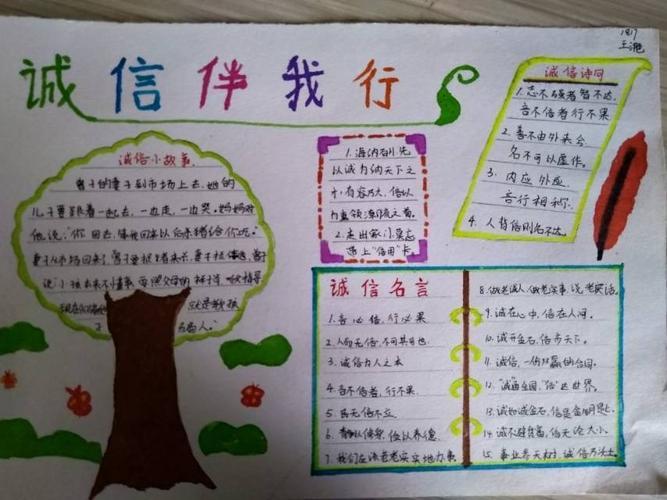 1817
王滟
诚信伴我行
诚信小故事
曾子的妻子到市场上去,她的
儿子要跟着一起去,一边走,一边哭,妈妈对
他说:"你回去,等我回来以后杀猪给你吃。"
妻子从市场回来了,曾子要捉猪来杀,妻子拦
说小孩
就是教孩
子
1.海纳百川先
以诚为纳天下之
才,有容乃大,信以
2.走出家门莫忘
带上"信用"卡
诚信诗词
1.志不强者智不达,
言不信者行不果
2.善不由外来兮
名不可以虚作。
3.内应外应,
言行相称。
4.人背信则名不达。
诚信名言
1.言必信,行必果
2.人而无信,不可其可也
3.诚信为人之本
4.言不信者,行不果。
5.民无信不立
6.信以养德
7.我们应该老老实实地办事
8.做老诚人,做老实事,说老实话。
9.诚在心中,信在人间。
10.诚开金石,信步天下。
11.诚信,一份双赢的合同。
12."诚"通全国,"信"达世界。
13.诚如
14.诚不避贫富,信无论大小。
15.事业参天树,诚信乃沃土